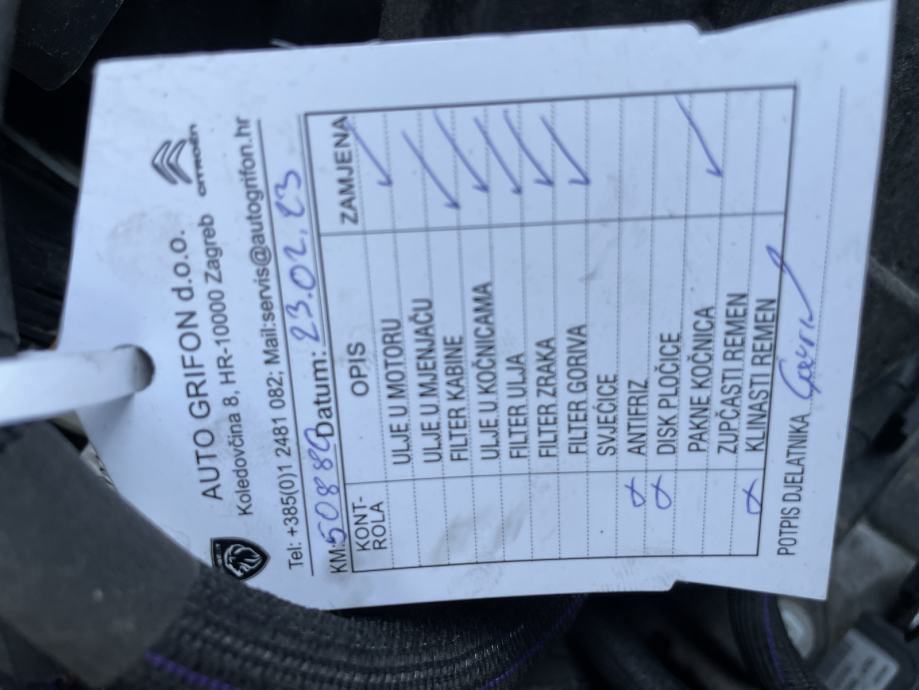 CITROËN
AUTO GRIFON d.o.o.
Koledovčina 8, HR-10000 Zagreb
Tel: +385(0)1 2481 082; Mail:servis@autogrifon.hr
KM: 50889 Datum: 23.02.23
KONT-ROLA OPIS ZAMJENA
ULJE U MOTORU ✓
ULJE U MJENJAČU
FILTER KABINE ✓
ULJE U KOČNICAMA ✓
FILTER ULJA ✓
FILTER ZRAKA ✓
FILTER GORIVA ✓
SVJEĆICE
ANTIFRIZ
DISK PLOČICE
PAKNE KOČNICA
ZUPČASTI REMEN ✓
KLINASTI REMEN
POTPIS DJELATNIKA